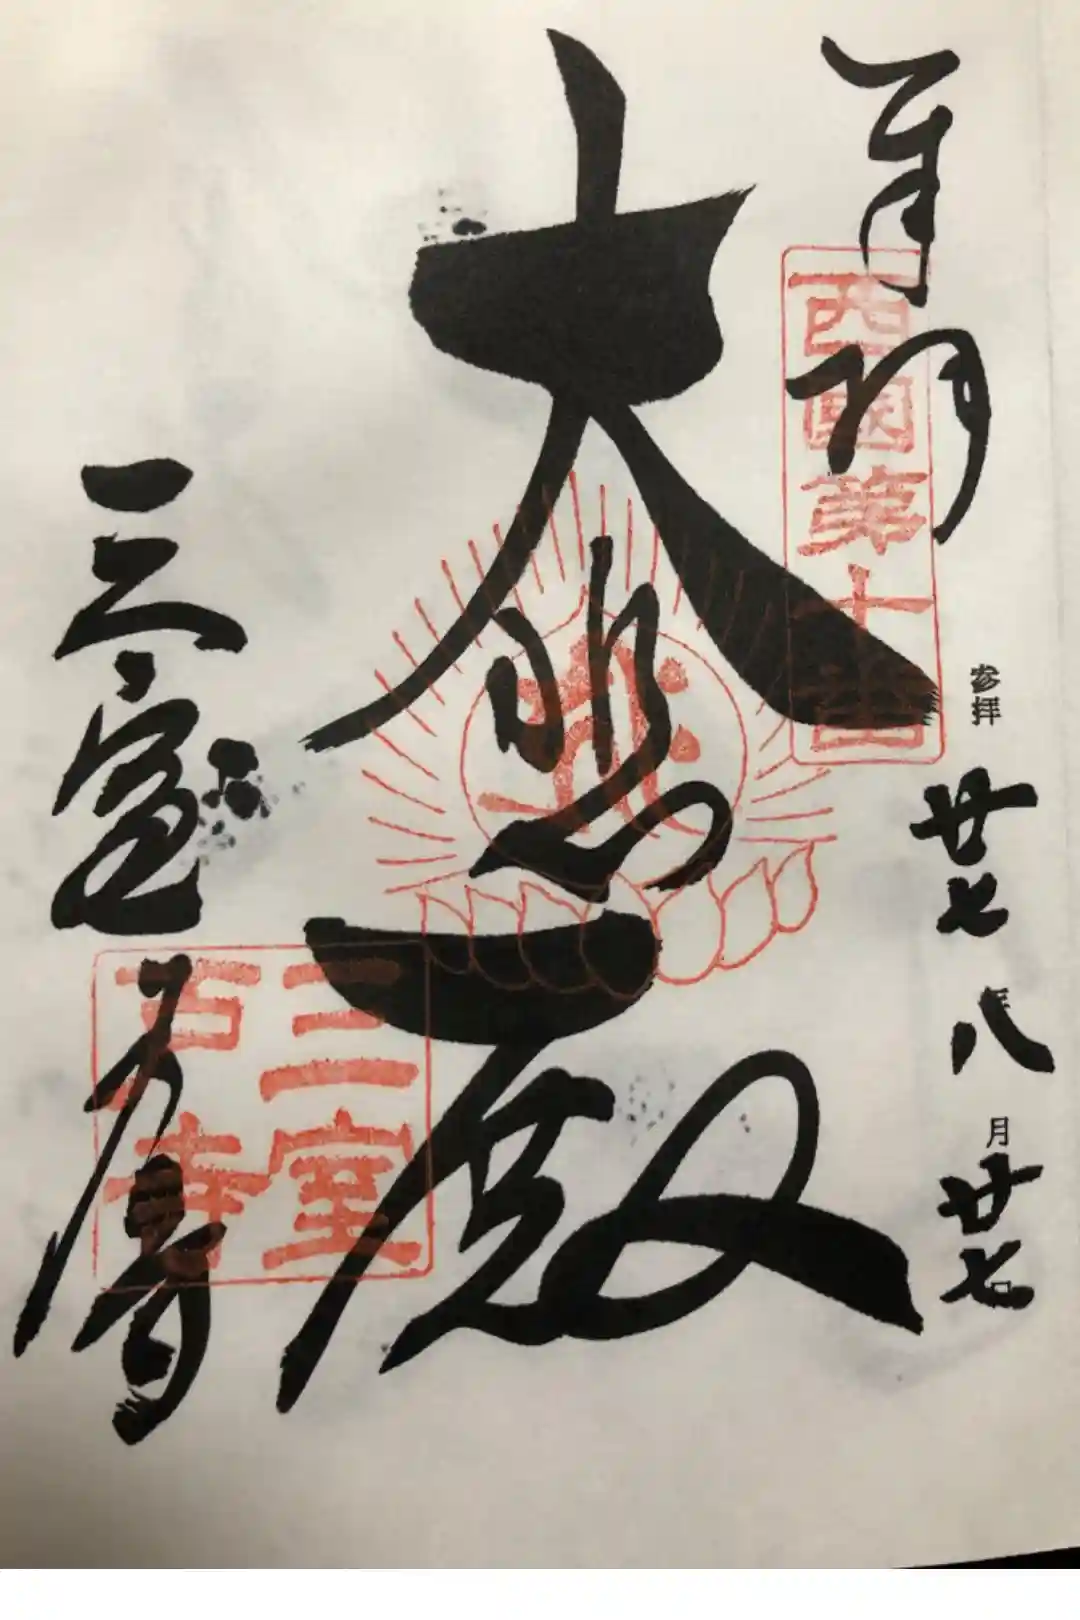 奉拝
西國第十番
参拝
廿七年八月廿七日
大悲殿
三室戸寺
三室
戸寺